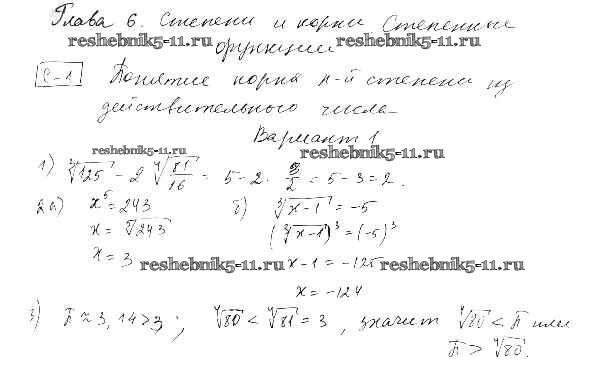 Глава 6. Степени и корни Степенные
функции
reshebnik5-11.ru reshebnik5-11.ru
С-1 Понятие корня n-й степени из
действительного числа
Вариант 1
reshebnik5-11.ru reshebnik5-11.ru
1) ∛125 - 2 ∜(81/16) = 5 - 2 · 3/2 = 5 - 3 = 2.
2 а) x⁵ = 243 б) ∛(x-1) = -5
x = ⁵√243 (∛(x-1))³ = (-5)³
x = 3 x - 1 = -125
reshebnik5-11.ru reshebnik5-11.ru
x = -124
3) π ≈ 3,14 > 3 ; ∜80 < ∜81 = 3 , значит ∜80 < π или
π > ∜80.